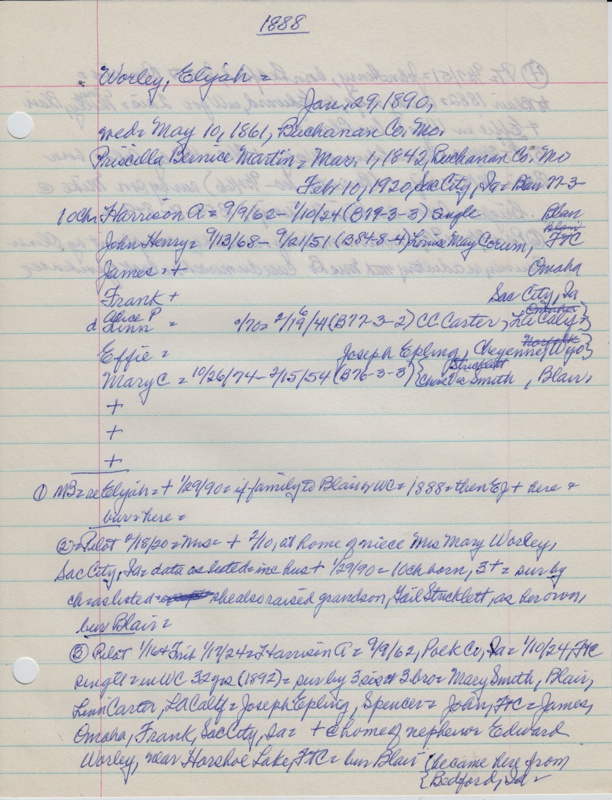 1888
Worley, Elijah =
Jan. 29, 1890,
wed = May 10, 1861, Buchanan Co. Mo.
Priscilla Bernice Martin = Mar. 1, 1842, Buchanan Co. Mo
Feb. 10, 1920, Sac City, Ia = Blair 77-3-
10 Ch. Harrison A = 9/9/62 - 1/10/24 (B79-3-3) Single Blair
John Henry = 9/13/68 - 9/21/51 (B848-4) Lina May Corum, FTC
James = + Omaha
Frank + Sac City, Ia
Alice P
d Linn = 2/19/41 (B77-3-2) CC Carter, LA Calif}
Effie = Joseph Epling, Cheyenne, Wyo}
Mary C = 10/26/74 - 2/15/54 (B76-3-3) {Stricklett
Smith, Blair,
+
+
+
① MB = re Elijah = + 1/29/90 = if family to Blair, WC = 1888 = then EJ + here &
bur = here =
② = Pilot 2/18/20 = Mrs = + 2/10, at home of niece Mrs Mary Worley,
Sac City, Ia = data as listed = inc hus + 1/29/90 = 10 ch born, 3 + = sur by
ch = as listed = she also raised grandson, Gail Stricklett, as her own,
bur Blair =
③ Pilot 1/16 + Trib 1/17/24 = Harrison A = 9/9/62, Polk Co, Ia = 1/10/24, FTC
single = in WC 32 yrs (1892) = sur by 3 sis & 3 bro = Mary Smith, Blair,
Linn Carter, LA Calif = Joseph Epling, Spencer = John, FTC = James,
Omaha, Frank, Sac City, Ia = + @ home of nephew = Edward
Worley, near Horshoe Lake, FTC = bur Blair {became here from
{Bedford, Ia =